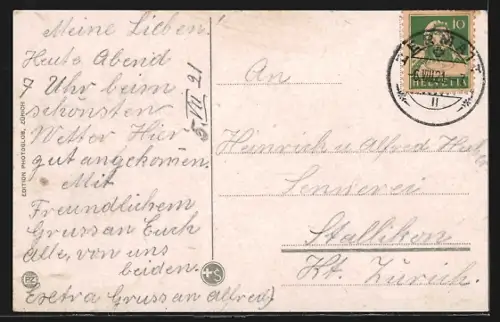 Meine Lieben!
Heute Abend
7 Uhr beim
schönsten
Wetter Hier
gut angekommen.
Mit
Freundlichem
Gruss an Euch
alle, von uns
beiden.
Extra Gruss an Alfred
5 VII 21
EDITION PHOTOGLOB, ZÜRICH
PZ
An
Heinrich u Alfred
Sennerei
Stallikon
Kt. Zürich.
10
HELVETIA
ZERMATT
II